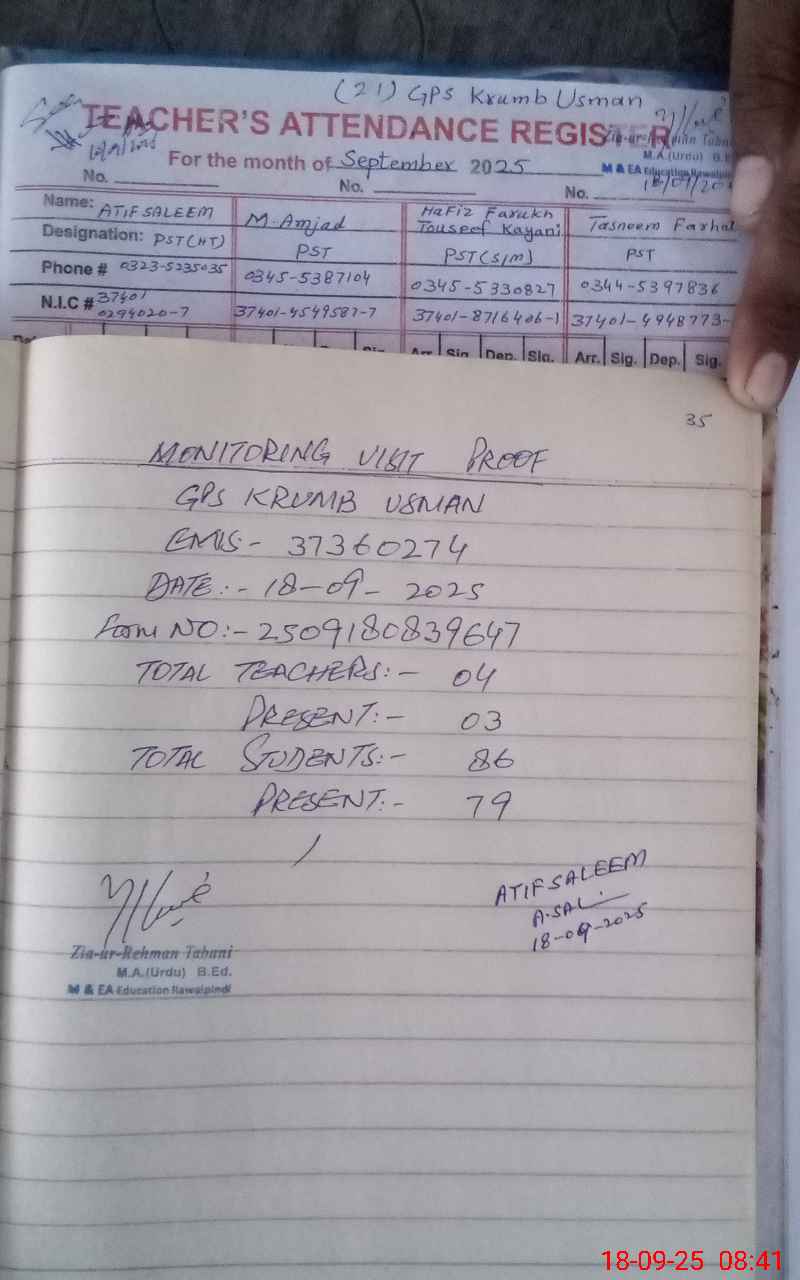 (21) GPS Krumb Usman
TEACHER'S ATTENDANCE REGISTER
Zia-ur-Rehman Tabani
M.A.(Urdu) B.Ed
For the month of September 2025
M & EA Education Rawalpindi
No. No. No.
Name: ATIF SALEEM M. Amjad Hafiz Farukh Touseef Kayani Tasneem Farhat
Designation: PST(HT) PST PST(S/M) PST
Phone # 0323-5235035 0345-5387104 0345-5330827 0344-5397836
N.I.C # 37401 0294020-7 37401-4549587-7 37401-8716406-1 37401-4948773-
Arr. Sig. Dep. Sig. Arr. Sig. Dep. Sig.
35
MONITORING VISIT PROOF
GPS KRUMB USMAN
EMIS:- 37360274
DATE:- 18-09-2025
Form NO:- 2509180839647
TOTAL TEACHERS:- 04
PRESENT:- 03
TOTAL STUDENTS:- 86
PRESENT:- 79
ATIF SALEEM
A.SAL
18-09-2025
Zia-ur-Rehman Tabani
M.A.(Urdu) B.Ed.
M & EA Education Rawalpindi
18-09-25 08:41